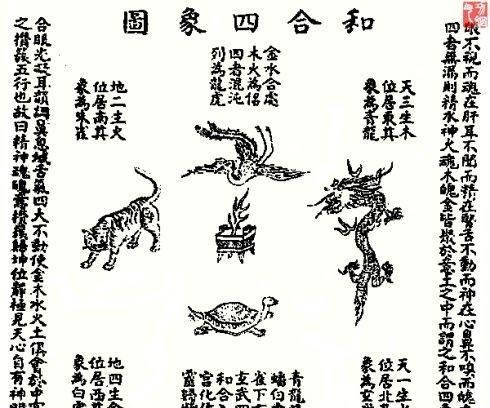 和合四象圖
眼不視而魂在肝耳不聞而精在腎舌不動而神在心鼻不嗅而魄
四者無漏則精水神火魂木魄金皆聚於意土之中而謂之和合四
天三生木
位居東真
象為青龍
金水合處
木火為侶
四者混沌
列為龍虎
地二生火
位居南真
象為朱雀
合眼光凝耳韻調鼻息緘舌氣四大不動使金木水火土俱會於中
之攢簇五行也故曰精神魂魄意攢簇歸坤位靜極見天心自有神明
天一生
位居北
象為玄
青龍
雀下
玄武四
和合
宮化
地四生金
位居西
象為白